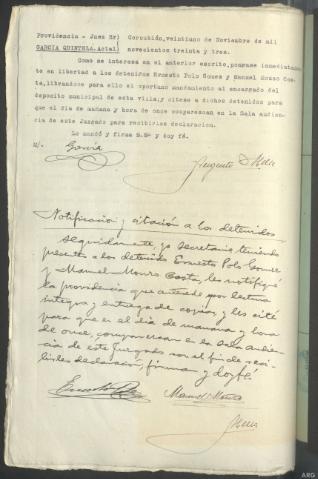 Providencia - Juez Sr) Corcubión, veintiuno de Noviembre de mil
GARCIA QUINTELA. Actal) novecientos treinta y tres.
Como se interesa en el anterior escrito, ponganse inmediatamente
en libertad a los detenidos Ernesto Polo Gomez y Manuel Mouzo Cos-
ta, librandose para ello el oportuno mandamiento al encargado del
deposito municipal de esta villa; y citese a dichos detenidos para
que el dia de mañana y hora de once comparezcan en la Sala audien-
cia de este Juzgado para recibirles declaracion.
Lo mandó y firma S.Sª y doy fé.
Garcia
Notificación y citación a los detenidos
Seguidamente, yo secretario teniendo
presentes a los detenidos Ernesto Polo Gomez
y Manuel Mouzo Costa, les notifiqué
la providencia que antecede por lectura
integra y entrega de copias, y les cité
para que en el dia de mañana y hora
de once, comparezcan en la sala audien-
cia de este Juzgado con el fin de reci-
birles declaración, firman y doy fé
Manuel Mouzo
ARG